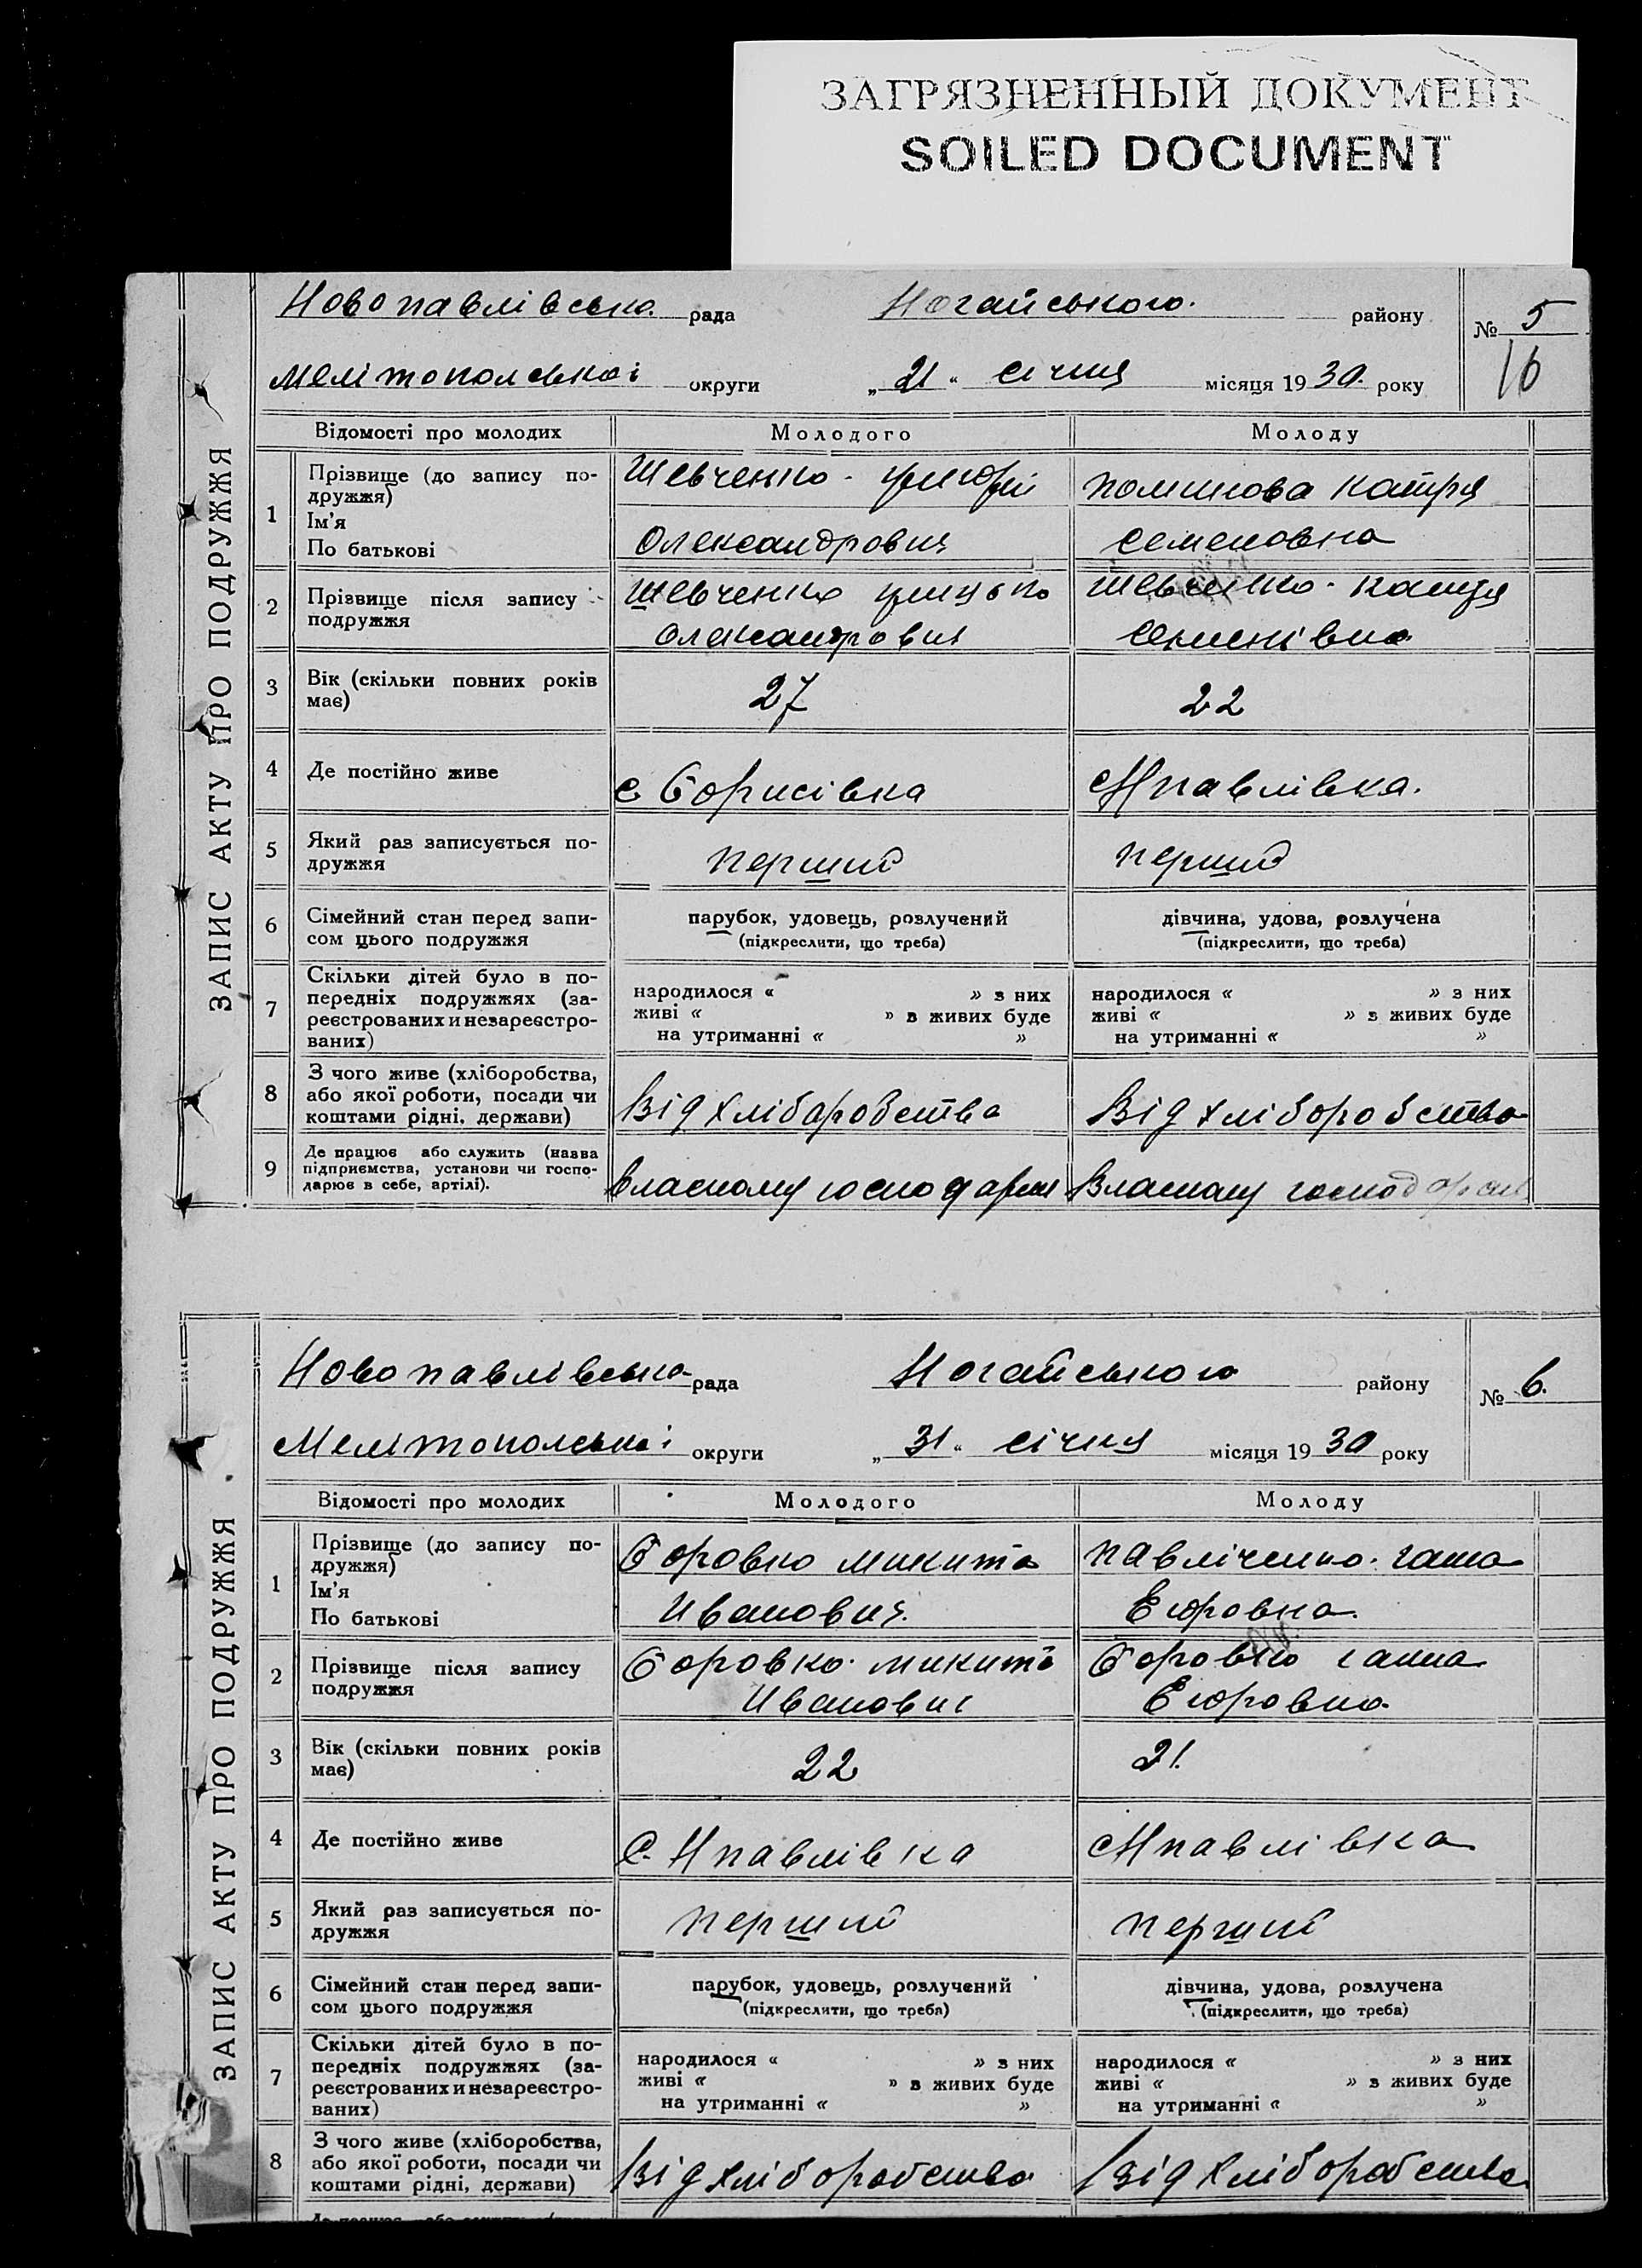 ЗАГРЯЗНЕННЫЙ ДОКУМЕНТ
SOILED DOCUMENT
ЗАПИС АКТУ ПРО ПОДРУЖЖЯ
Новопавлівська рада Ногайського району № 5
Мелітопольської округи „21“ січня місяця 1930 року 16
Відомості про молодих Молодого Молоду
1 Прізвище (до запису по-
дружжя)
Ім'я
По батькові
Шевченко
Олександрович
Катря
Семеновна
2 Прізвище після запису
подружжя
Шевченко Грицько
Олександрович
Шевченко Катря
Семенівна
3 Вік (скільки повних років
має)
27 22
4 Де постійно живе с Борисівка с Нпавлівка.
5 Який раз записується по-
дружжя
перший перший
6 Сімейний стан перед запи-
сом цього подружжя
парубок, удовець, розлучений
(підкреслити, що треба)
дівчина, удова, розлучена
(підкреслити, що треба)
7 Скільки дітей було в по-
передніх подружжях (за-
реєстрованих и незареєстро-
ваних)
народилося « » з них
живі « » з живих буде
на утриманні « »
народилося « » з них
живі « » з живих буде
на утриманні « »
8 З чого живе (хліборобства,
або якої роботи, посади чи
коштами рідні, держави)
Від хліборобства Від хліборобства
9 Де працює або служить (назва
підприємства, установи чи госпо-
дарює в себе, артілі).
власному Власному
ЗАПИС АКТУ ПРО ПОДРУЖЖЯ
Новопавлівська рада Ногайського району № 6.
Мелітопольської округи „31“ січня місяця 1930 року
Відомості про молодих Молодого Молоду
1 Прізвище (до запису по-
дружжя)
Ім'я
По батькові
Боровко Микита
Иванович.
Павліченко Ганна
Егоровна.
2 Прізвище після запису
подружжя
Боровко Микита
Иванович
Боровко Ганна
Егоровна
3 Вік (скільки повних років
має)
22 21.
4 Де постійно живе с. Нпавлівка с Нпавлівка
5 Який раз записується по-
дружжя
перший перший
6 Сімейний стан перед запи-
сом цього подружжя
парубок, удовець, розлучений
(підкреслити, що треба)
дівчина, удова, розлучена
(підкреслити, що треба)
7 Скільки дітей було в по-
передніх подружжях (за-
реєстрованих и незареєстро-
ваних)
народилося « » з них
живі « » з живих буде
на утриманні « »
народилося « » з них
живі « » з живих буде
на утриманні « »
8 З чого живе (хліборобства,
або якої роботи, посади чи
коштами рідні, держави)
Від хліборобства Від хліборобства